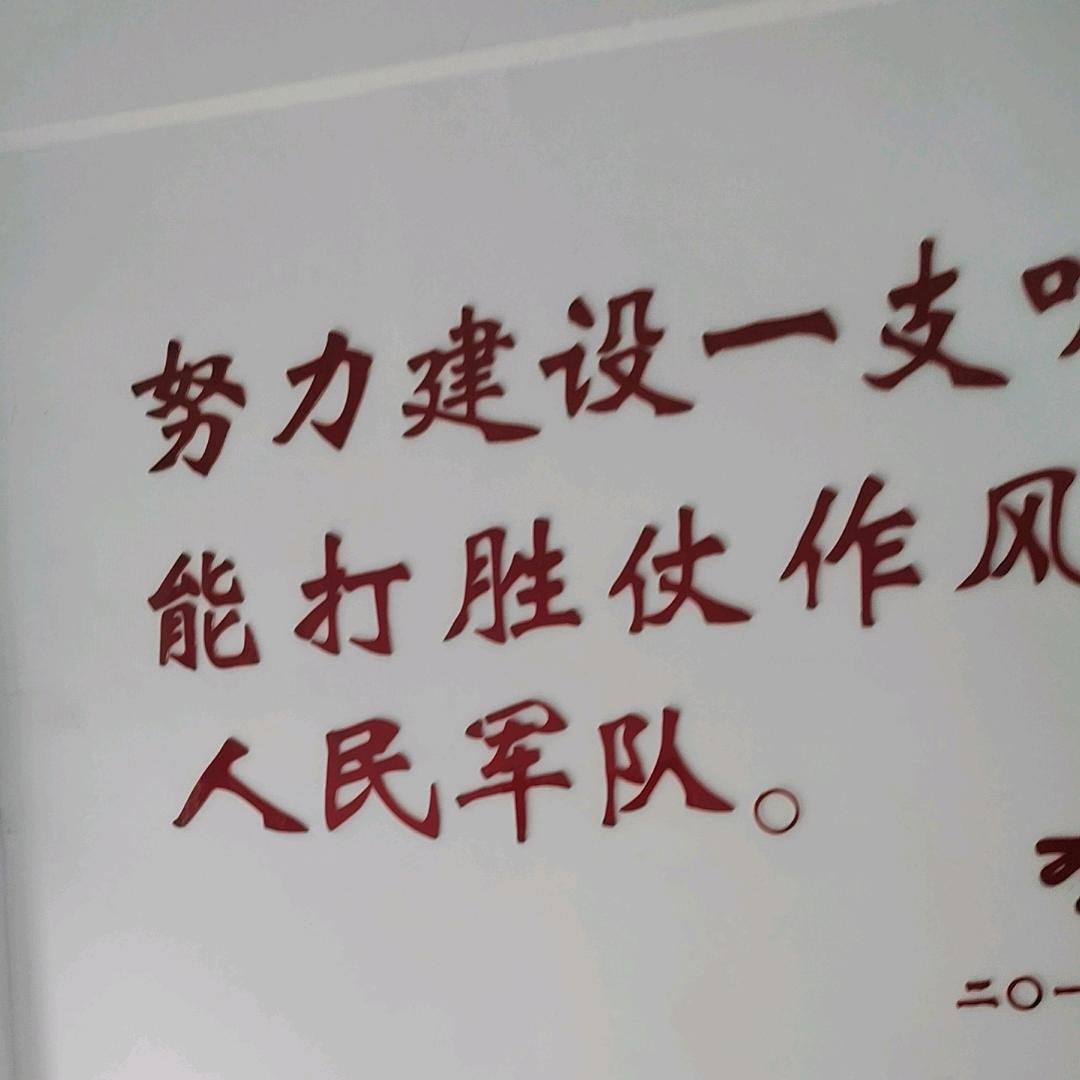 努力建设一支
能打胜仗作风
人民军队。
二〇一